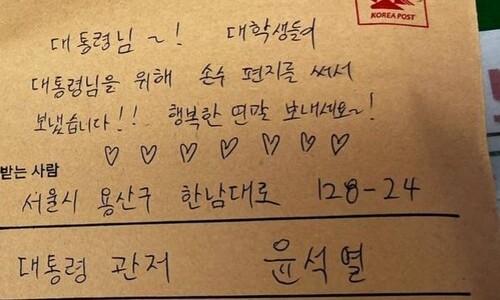 KOREA POST
대통령님~! 대학생들이
대통령님을 위해 손수 편지를 써서
보냈습니다!! 행복한 연말 보내세요~!
♡ ♡ ♡ ♡ ♡ ♡ ♡
받는 사람
서울시 용산구 한남대로 128-24
대통령 관저 윤석열